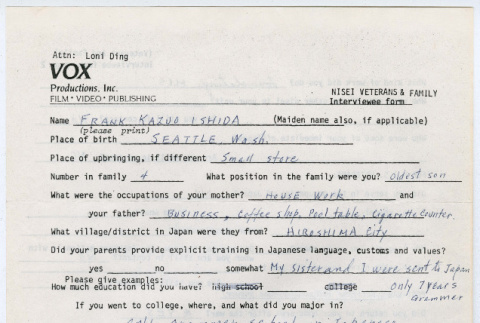 Attn: Loni Ding
VOX
Productions, Inc.
FILM • VIDEO • PUBLISHING
NISEI VETERANS & FAMILY
Interviewee form
Name FRANK KAZUO ISHIDA (Maiden name also, if applicable)
(please print)
Place of birth SEATTLE, Wash.
Place of upbringing, if different Small store
Number in family 4 What position in the family were you? oldest son
What were the occupations of your mother? House Work and
your father? Business, Coffee shop, Pool table, Cigarette Counter.
What village/district in Japan were they from? HIROSHIMA City
Did your parents provide explicit training in Japanese language, customs and values?
yes no somewhat My sister and I were sent to Japan
Please give examples:
How much education did you have? high school college only 7 years
Grammer
If you went to college, where, and what did you major in?